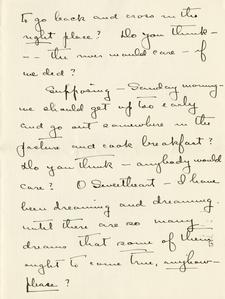 to go back and cross in the
right place? Do you think -
- - the river would care - if
we did?
Supposing - Sunday morning -
we should get up too early
and go out somewhere in the
pasture and cook breakfast?
Do you think - anybody would
care? O Sweetheart - I have
been dreaming and dreaming
until there are so many
dreams that some of them
ought to come true, anyhow -
please?